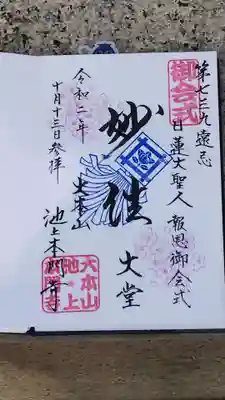 御会式
第七三九遠忌
日蓮大聖人 報恩御会式
妙法
大堂
大本山
池上本門寺
大本山
池上
本門寺
令和二年
十月十三日参拝